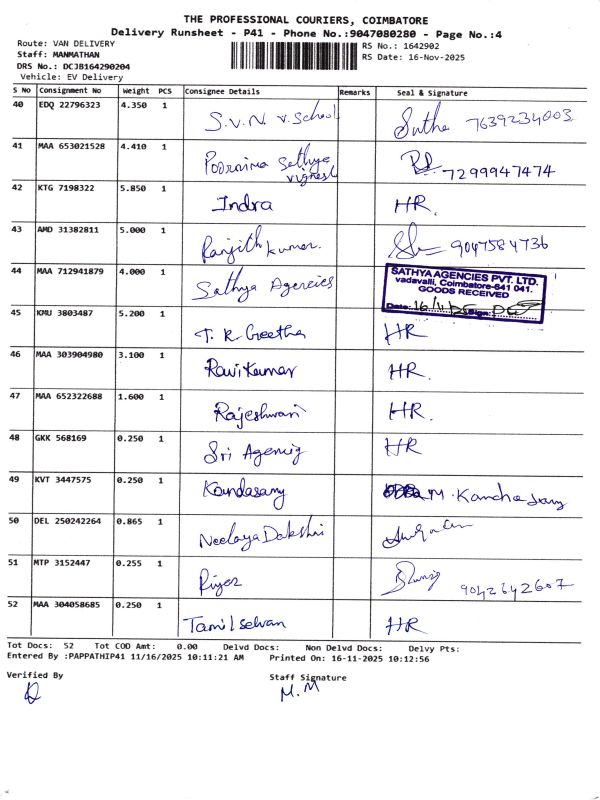 THE PROFESSIONAL COURIERS, COIMBATORE
Delivery Runsheet - P41 - Phone No.:9047080280 - Page No.:4
Route: VAN DELIVERY
Staff: MANMATHAN
DRS No.: DCJB164290204
Vehicle: EV Delivery
RS No.: 1642902
RS Date: 16-Nov-2025
S No Consignment No Weight PCS Consignee Details Remarks Seal & Signature
40 EDQ 22796323 4.350 1 S.V.N. V. School Sutha 7639234003
41 MAA 653021528 4.410 1 Poornima Sathya
Vignesh 7299947474
42 KTG 7198322 5.850 1 Indra HR.
43 AMD 31382811 5.000 1 Ranjith Kumar. 9047584736
44 MAA 712941879 4.000 1 Sathya Agencies
SATHYA AGENCIES PVT. LTD.
vadavalli, Coimbatore-641 041.
GOODS RECEIVED
Date: 16/11/25 Sign:
45 KMU 3803487 5.200 1 T. R Geetha HR
46 MAA 303904980 3.100 1 Ravi Kumar HR.
47 MAA 652322688 1.600 1 Rajeshwari HR.
48 GKK 568169 0.250 1 Sri Agency HR
49 KVT 3447575 0.250 1 Kandasamy M.
50 DEL 250242264 0.865 1 Neelaya Dakshi
51 MTP 3152447 0.255 1 Riyas 9042642607
52 MAA 304058685 0.250 1 Tamilselvan HR
Tot Docs: 52 Tot COD Amt: 0.00 Delvd Docs: Non Delvd Docs: Delvy Pts:
Entered By :PAPPATHIP41 11/16/2025 10:11:21 AM Printed On: 16-11-2025 10:12:56
Verified By
Staff Signature
M. M